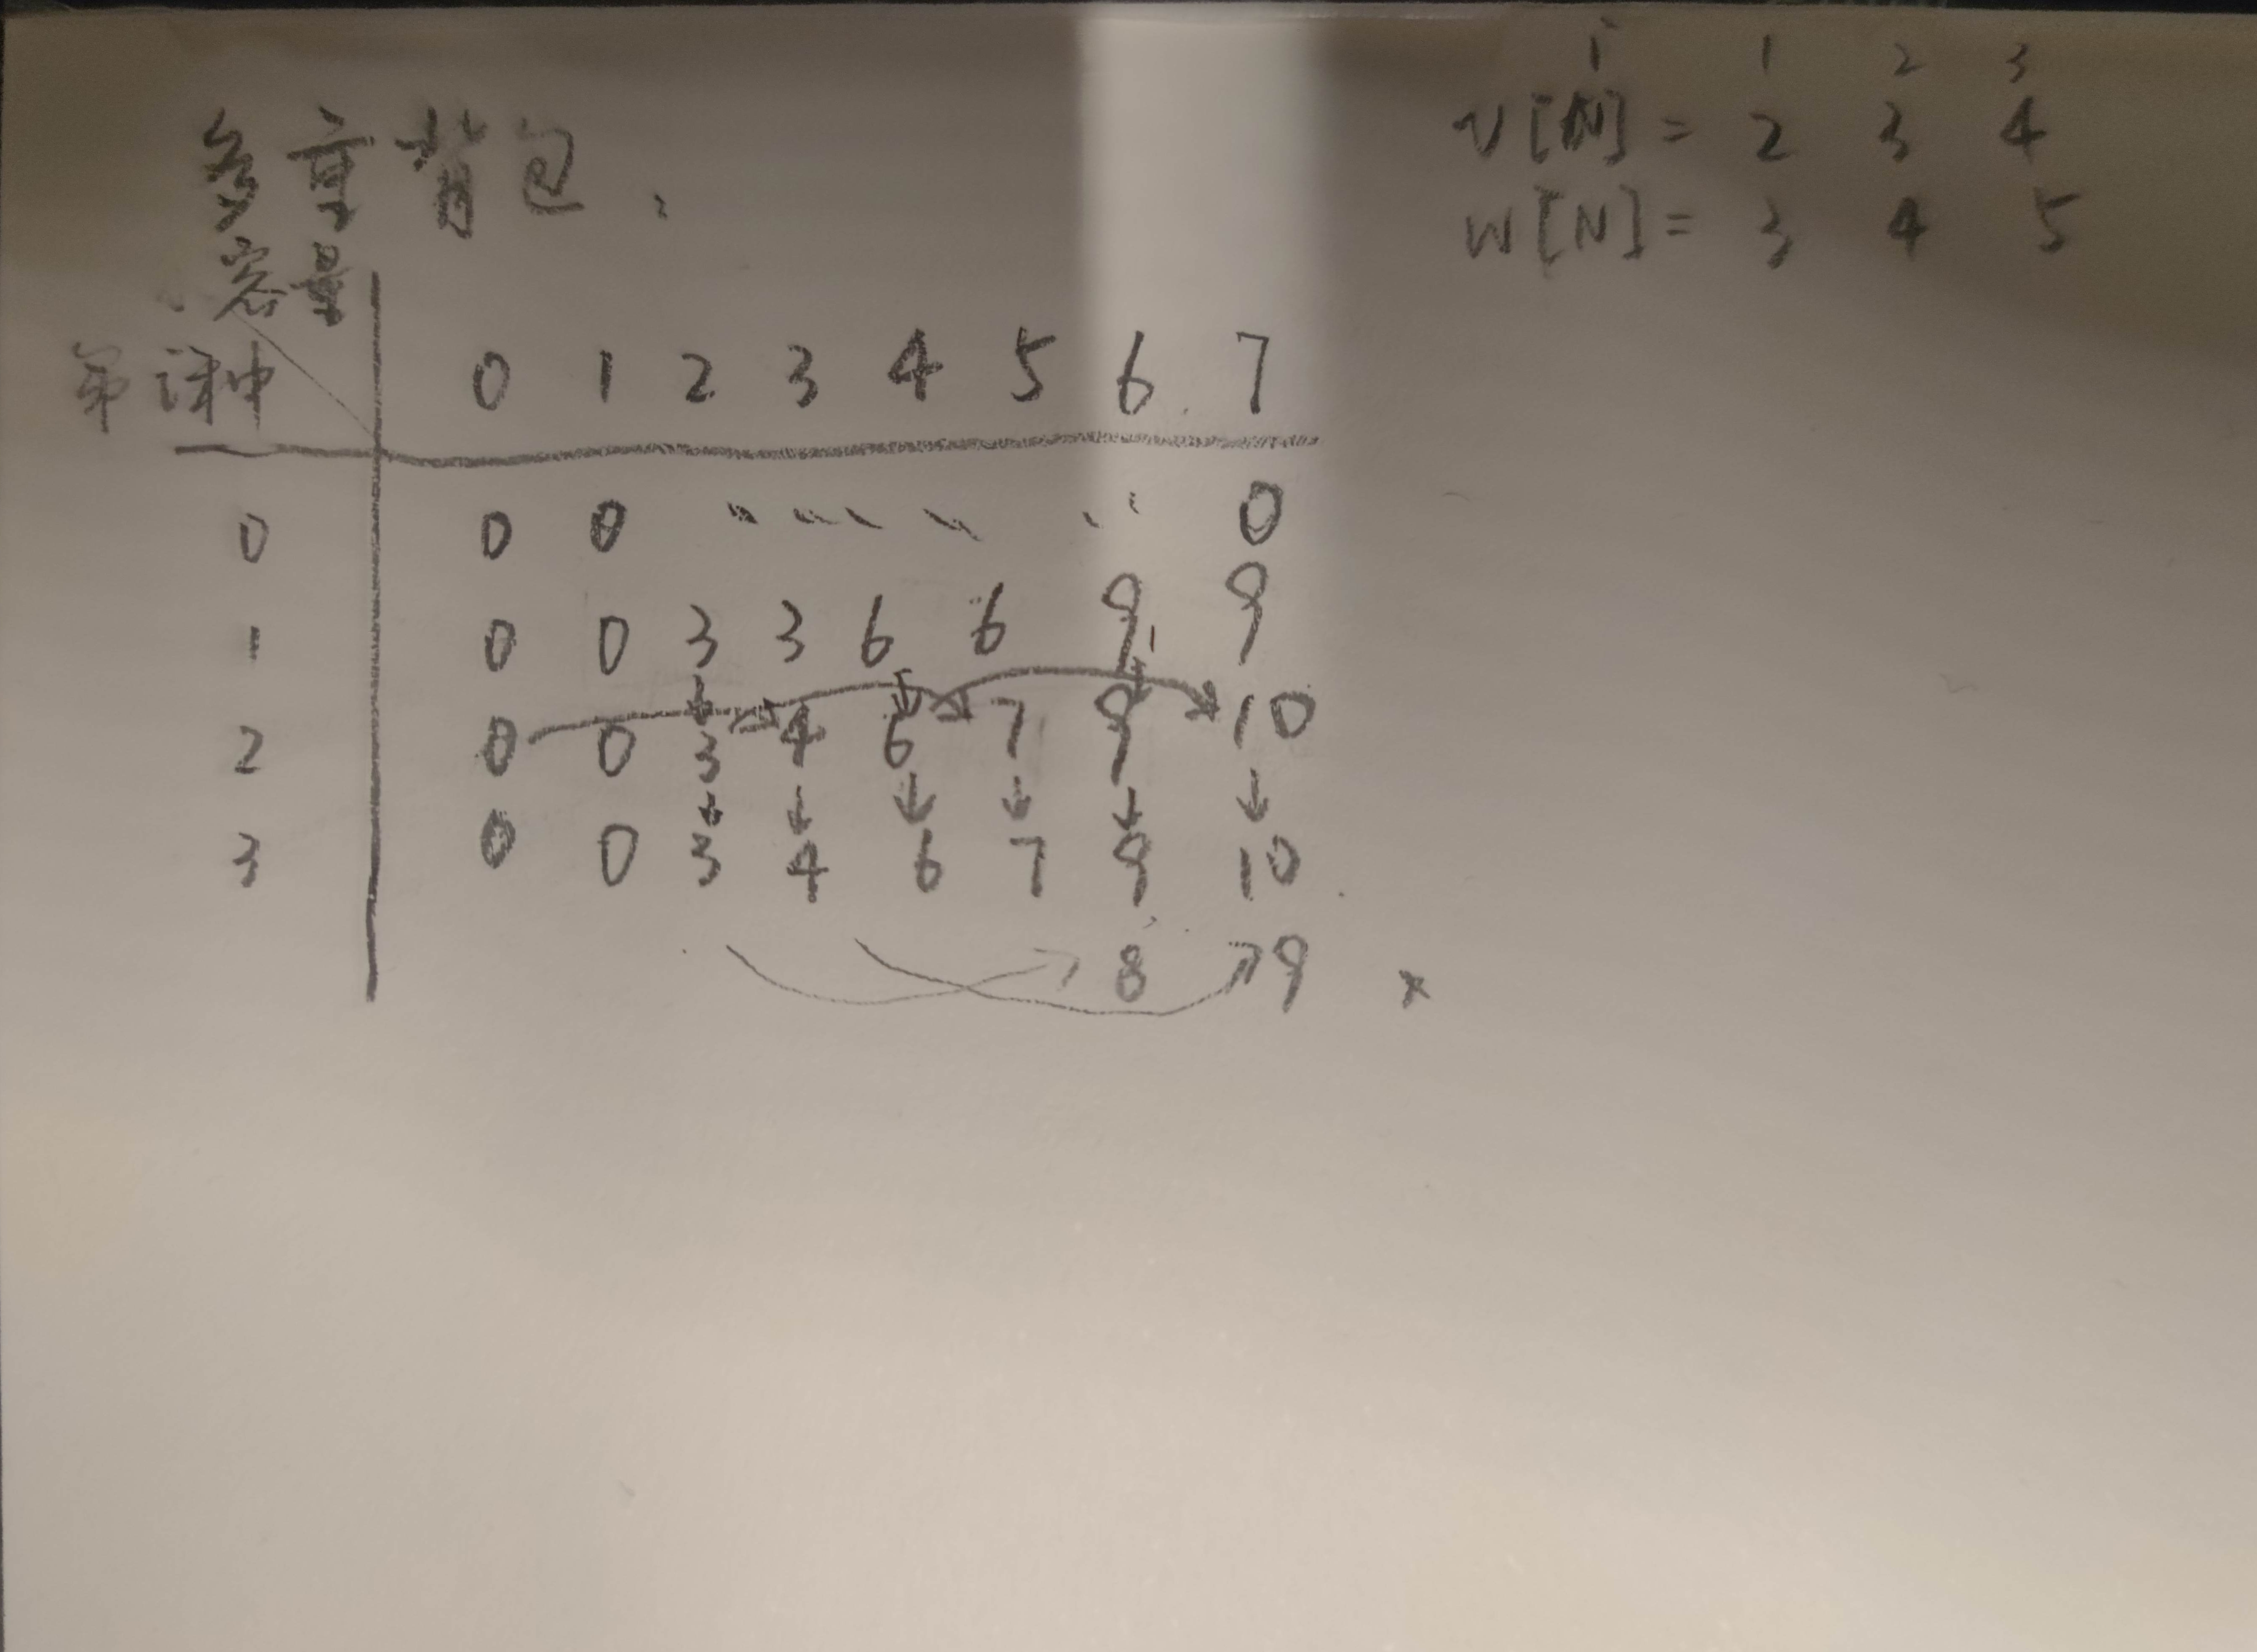 i 1 2 3
v[N] = 2 3 4
w[N] = 3 4 5
多重背包.
容量
第i种 0 1 2 3 4 5 6 7
0 0 0 0
1 0 0 3 3 6 6 9 9
2 0 0 3 4 6 7 9 10
3 0 0 3 4 6 7 9 10
8 9 x